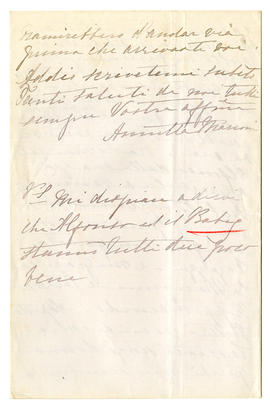 d'andar via
prima che arrivate voi.
Addio scrivetemi subito
Tanti saluti da noi tutti
sempre Vostra affma
Annetta
PS Mi dispiace a dirvi
che Alfonso ed il Bebè
stanno tutti due poco
bene